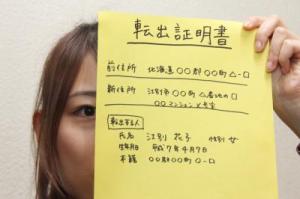 転出証明書
前住所 北海道〇〇郡〇〇町△-□
新住所 江別市〇〇町△番地の□
〇〇マンション×号室
転出する人
氏名 江別 花子 性別 女
生年月日 平成7年4月7日
本籍 〇〇郡〇〇町△-□